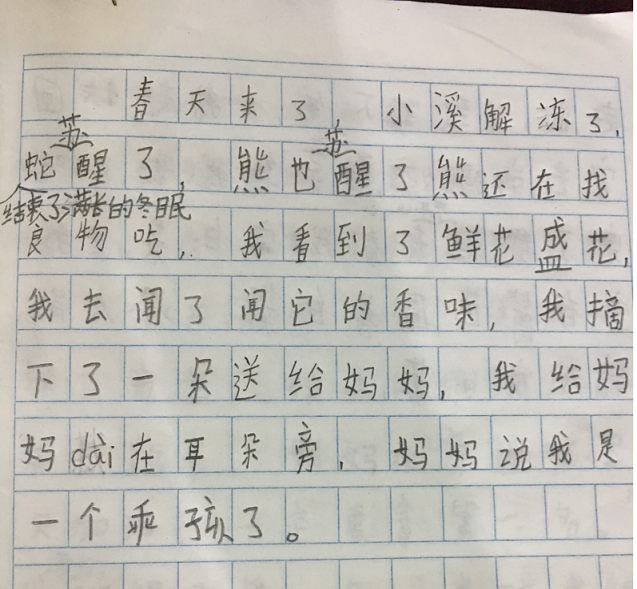 春天来了,小溪解冻了,
苏 苏
蛇醒了,熊也醒了熊还在找
结束了满长的冬眠
食物吃,我看到了鲜花盛花,
我去闻了闻它的香味,我摘
下了一朵送给妈妈,我给妈
妈dài在耳朵旁,妈妈说我是
一个乖孩了。